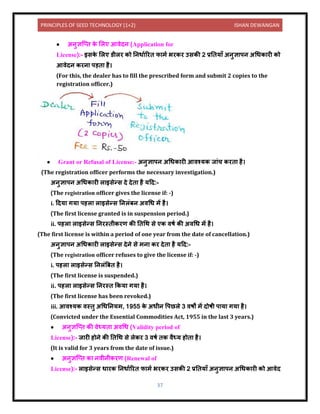 PRINCIPLES OF SEED TECHNOLOGY (1+2) ISHAN DEWANGAN
• अनुज्ञप्ति के लिए आवेदन (Application for
License):- इसके लिए डीलर को निर्धारित फार्म भरकर उसकी 2 प्रतियाँ अनुज्ञापन अधिकारी को
आवेदन करना पड़ता हैं।
(For this, the dealer has to fill the prescribed form and submit 2 copies to the
registration officer.)
Dealer
Fill Application form (2 copies)
Submit to the registration officer.
Fee = Rs.-50
• Grant or Refusal of License:- अनुज्ञापन अधिकारी आवश्यक जांच करता है।
(The registration officer performs the necessary investigation.)
अनुज्ञापन अधिकारी लाइसेन्स दे देता है यदि:-
(The registration officer gives the license if: -)
i. दिया गया पहला लाइसेन्स निलंबन अवधि में है।
(The first license granted is in suspension period.)
ii. पहला लाइसेन्स निरस्तीकरण की तिथि से एक वर्ष की अवधि में है।
(The first license is within a period of one year from the date of cancellation.)
अनुज्ञापन अधिकारी लाइसेन्स देने से मना कर देता है यदि:-
(The registration officer refuses to give the license if: -)
i. पहला लाइसेन्स निलंबित है।
(The first license is suspended.)
ii. पहला लाइसेन्स निरस्त किया गया है।
(The first license has been revoked.)
iii. आवश्यक वस्तु अधिनियम, 1955 के अधीन पिछले 3 वर्षों में दोषी पाया गया है।
(Convicted under the Essential Commodities Act, 1955 in the last 3 years.)
• अनुज्ञप्ति की वैध्यता अवधि (Validity period of
License):- जारी होने की तिथि से लेकर 3 वर्ष तक वैध्य होता है।
(It is valid for 3 years from the date of issue.)
• अनुज्ञप्ति का नवीनीकरण (Renewal of
License):- लाइसेन्स धारक निर्धारित फार्म भरकर उसकी 2 प्रतियाँ अनुज्ञापन अधिकारी को आवेद
37